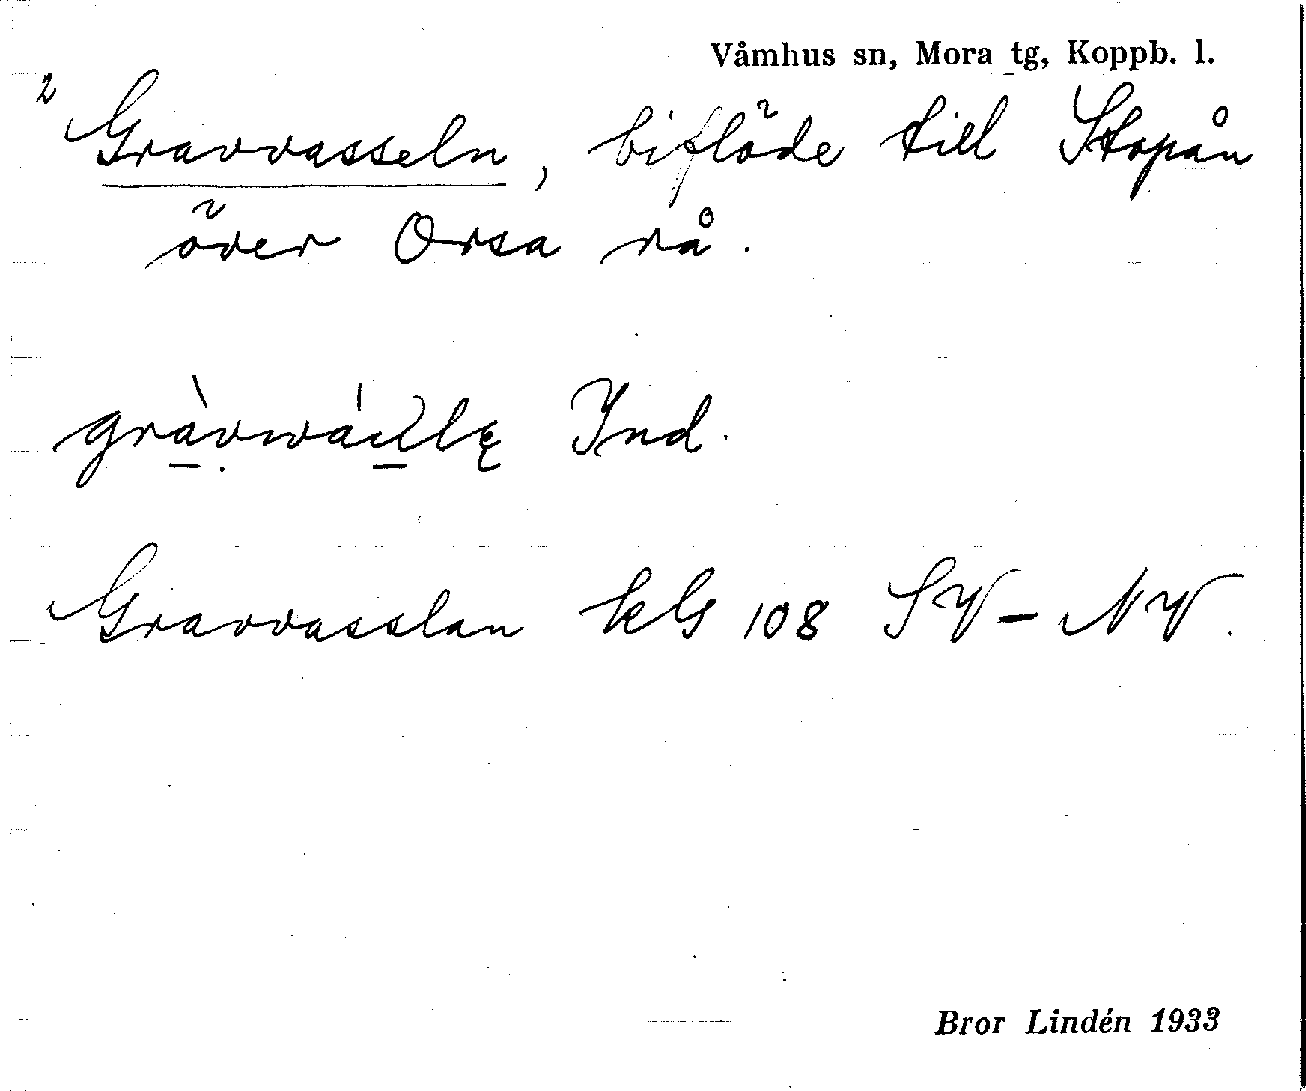 Våmhus sn, Mora tg, Koppb. l.
2 Gravvasseln, biflöde till Stopån
över Orsa rå.
Ind.
Gravvasslan kbl 108 SV – NV.
Bror Lindén 1933